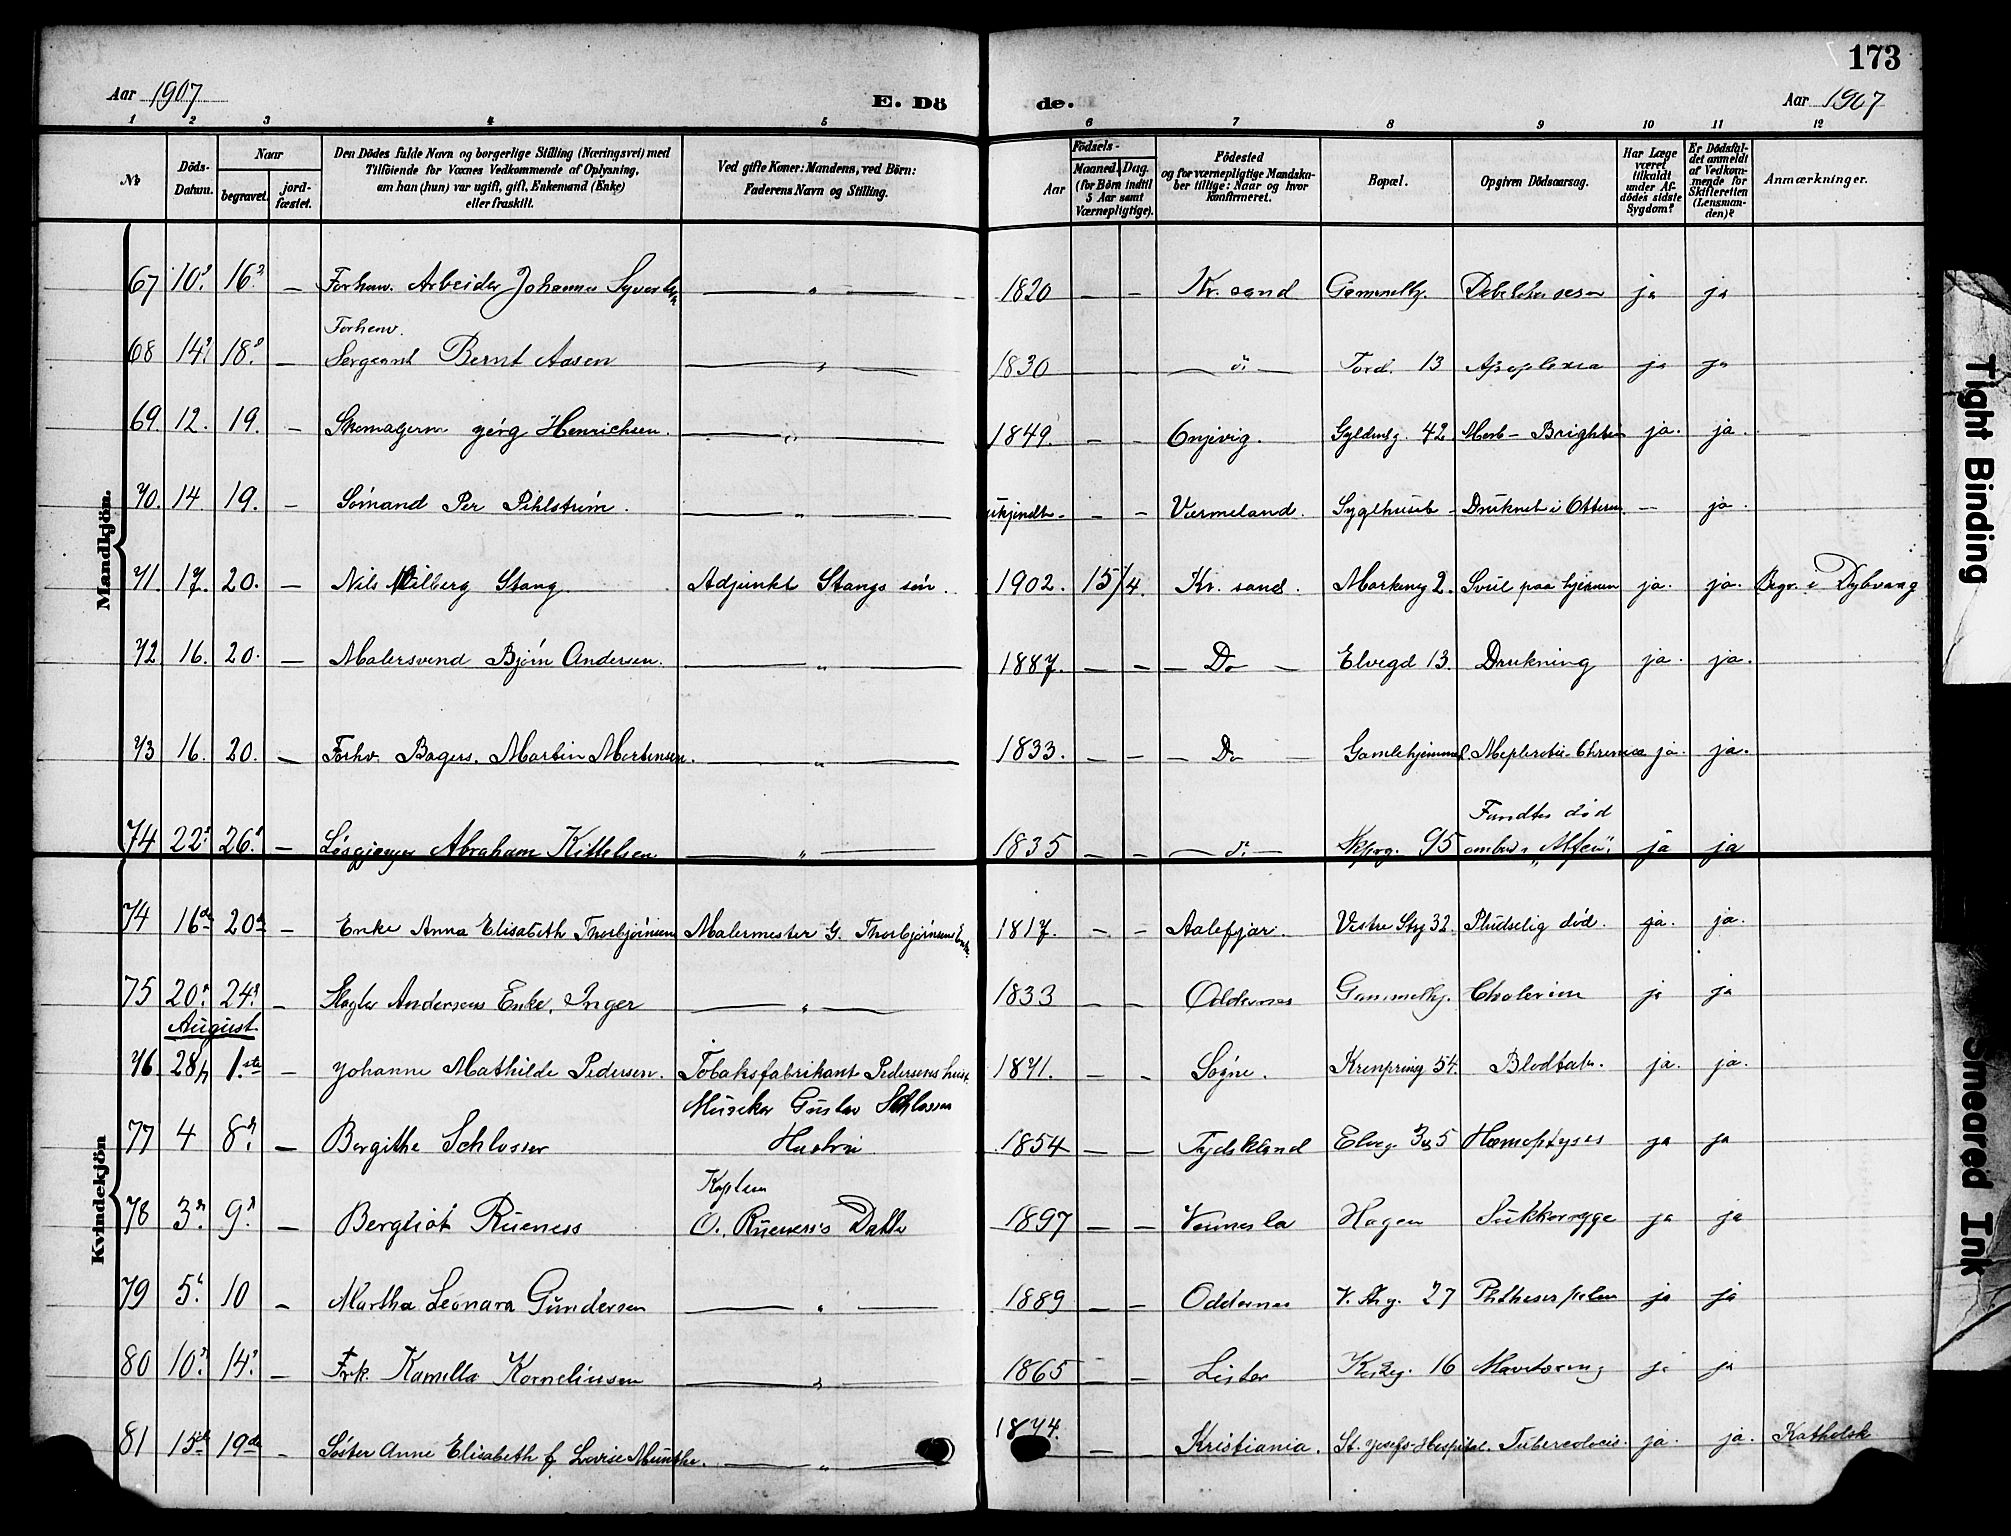 173
Aar 1907
E. Dö
de.
Aar 1907
1 2 3 4 5 6 7 8 9 10 11 12
No
Döds-Datum.
Naar
begravet.
jord-fæstet.
Den Dödes fulde Navn og borgerlige Stilling (Næringsvei) med
Tilföiende for Voxnes Vedkommende af Oplysning,
om han (hun) var ugift, gift, Enkemand (Enke)
eller fraskilt.
Ved gifte Koner: Mandens, ved Börn:
Faderens Navn og Stilling.
Födsels-
Aar
Maaned. Dag.
(for Börn indtil
5 Aar samt
Værnepligtige).
Födested
og for værnepligtige Mandska-
ber tillige: Naar og hvor
konfirmeret.
Bopæl.
Opgiven Dödsaarsag.
Har Læge
været
tilkaldt
under Af-
dödes sidste
Sygdom?
Er Dödsfal-
det anmeldt
af Vedkom-
mende for
Skifteretten
(Lensman-
den)?
Anmærkninger.
Mandkjön.
67 10 16 — Forhenv. Arbeider Johannes Syvertsen — " — 1820 — — Kr.sand ja ja
Forhenv.
68 14 18 — Sergeant Bernt Aasen — " — 1830 — — Tord. 13 Apoplexia ja ja
69. 12. 19. — Skomagerm Henrichsen. — " — 1849. — — Gyldenlg. 42 Morb- Brightii ja. ja. —
70. 14 19. — Sömand Per Pihlström. — " — ukjendt — — Værmeland. Sygehuset — Druknet i Otteren — ja.
71. 17. 20. — Nils Stang. Adjunkt Stangs sön. 1902. 15/4. Kr. sand. Markeng 2. Svul paa hjernen ja. ja. Begr. i Dybvaag
72 16. 20. — Malersvend Björn Andersen. — " — 1887. — — — Do — Elvegd 13. Drukning ja. ja.
73 16. 20. — Forhv. Bagers. Martin Mortensen. — " — 1833. — — — Do — Gamlehjemmet. ja. ja.
Fundtes död
74 22. 26. — Løsgjænger Abraham Kittelsen. — " — 1835 — — — do. — 95 ombord i "Alfen". ja ja
Kvindekjön
74 16de 20de — Enke Anna Elisabeth Thorbjörnsen Malermester G. Thorbjörnsens Enke. 1817. — — Aalefjær. Vestre Stg 32 Pludselig död. ja. ja.
75 20. 24. — Slagter Andersens Enke, Inger — " — 1833 — — Oddernes Gammelhj. Cholerine ja ja
August
76 28/7 1ste — Johanne Mathilde Pedersen. Tobaksfabrikant Pedersens hust. 1871. — — Søgne. Kronpring 54. Blodtab. ja. ja.
Musiker Gustav Schlosser
77 4 8 — Bergithe Schlosser Hustru 1854 — — Tydskland Elveg. Hæmoptyses ja ja
Kaptein
78 3. 9. — Bergliot Rueness O. Rueness's Datter 1897 — — Vennesla Hagen Sukkersyge ja ja
79 5. 10 — Martha Leonara Gundersen — " — 1889 — — Oddernes V. Stg. 27 ja ja
80 10. 14. — Frk. Kamilla Kornelinsen — " — 1865 — — Lister 16 Mavetæring ja ja
81 15de 19de — Söster Anne Elisabeth f Lovise Munthe. — " — 1874. — Kristiania. St. Josefs-Hospital. Tuberculosis. ja. ja. Katholsk
Tight Binding
Smeared Ink